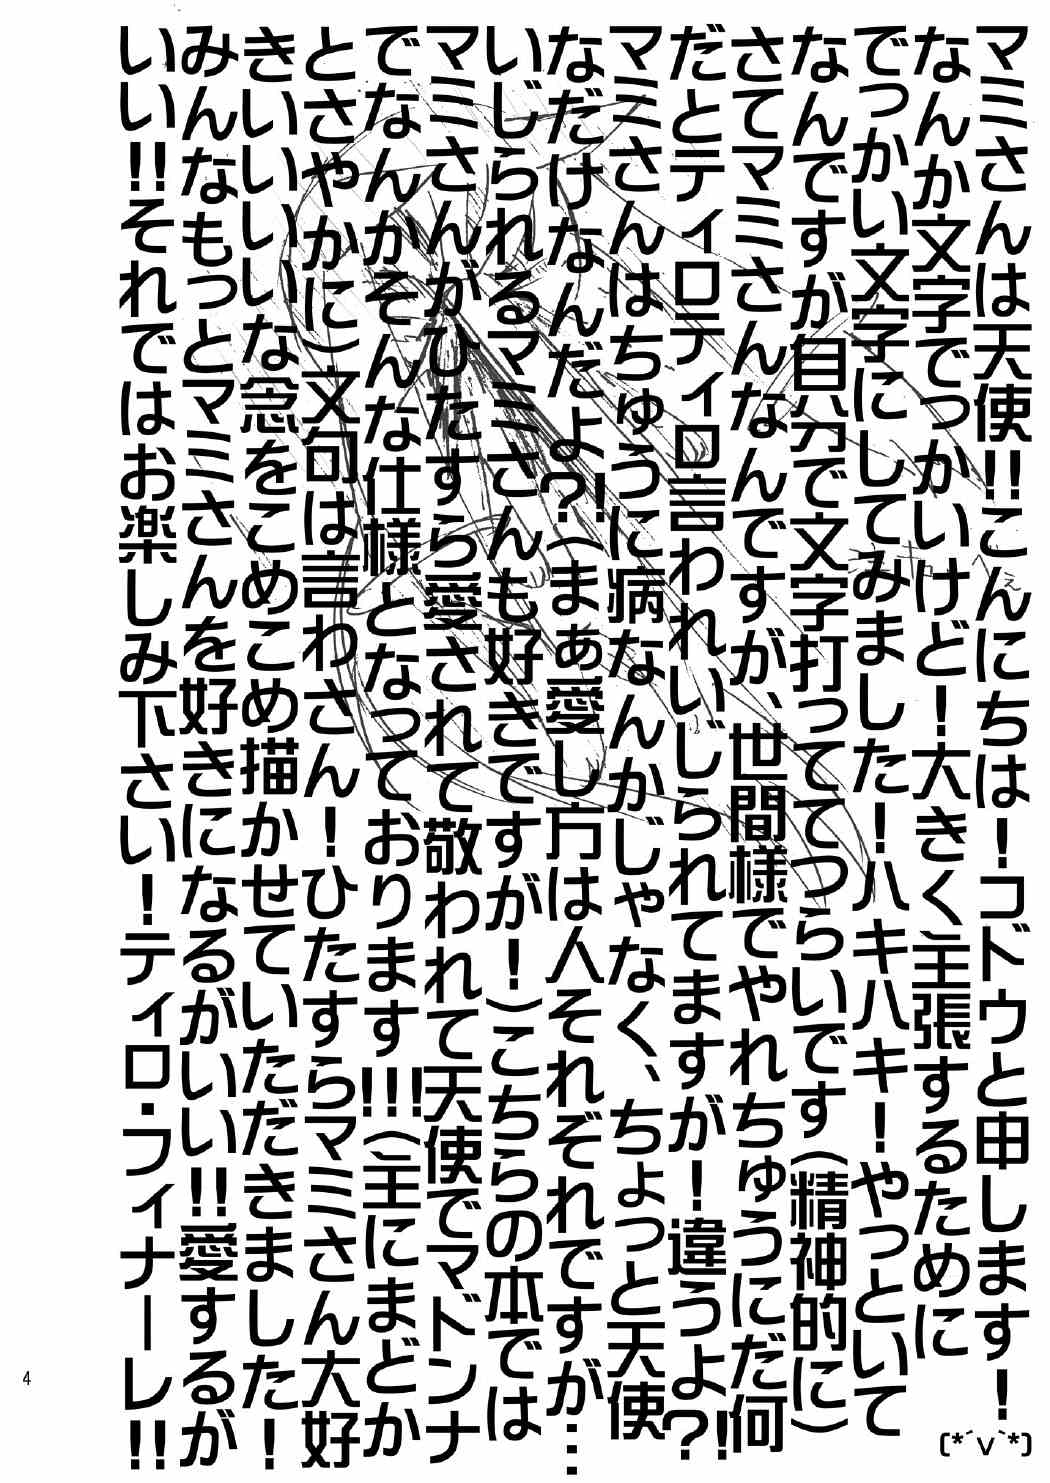 マミさんは天使!!こんにちは!コドウと申します!(*´∨`*)
なんか文字でっかいけど!大きく主張するために
でっかい文字にしてみました!ハキハキ!やっといて
なんですが自分で文字打っててつらいです(精神的に)
さてマミさんなんですが、世間様でやれちゅうにだ何
だとティロティロ言われいじられてますが!違うよ?!
マミさんはちゅうに病なんかじゃなく、ちょっと天使
なだけなんだよ?!(まぁ愛し方は人それぞれですが…
いじられるマミさんも好きですが!)こちらの本では
マミさんがひたすら愛されて敬われて天使でマドンナ
でなんかそんな仕様となっております!!!(主にまどか
とさやかに)文句は言わさん!ひたすらマミさん大好
きいいいいな念をこめこめ描かせていただきました!
みんなもっとマミさんを好きになるがいい!!愛するが
いい!!それではお楽しみ下さい!ティロ・フィナーレ!!
4